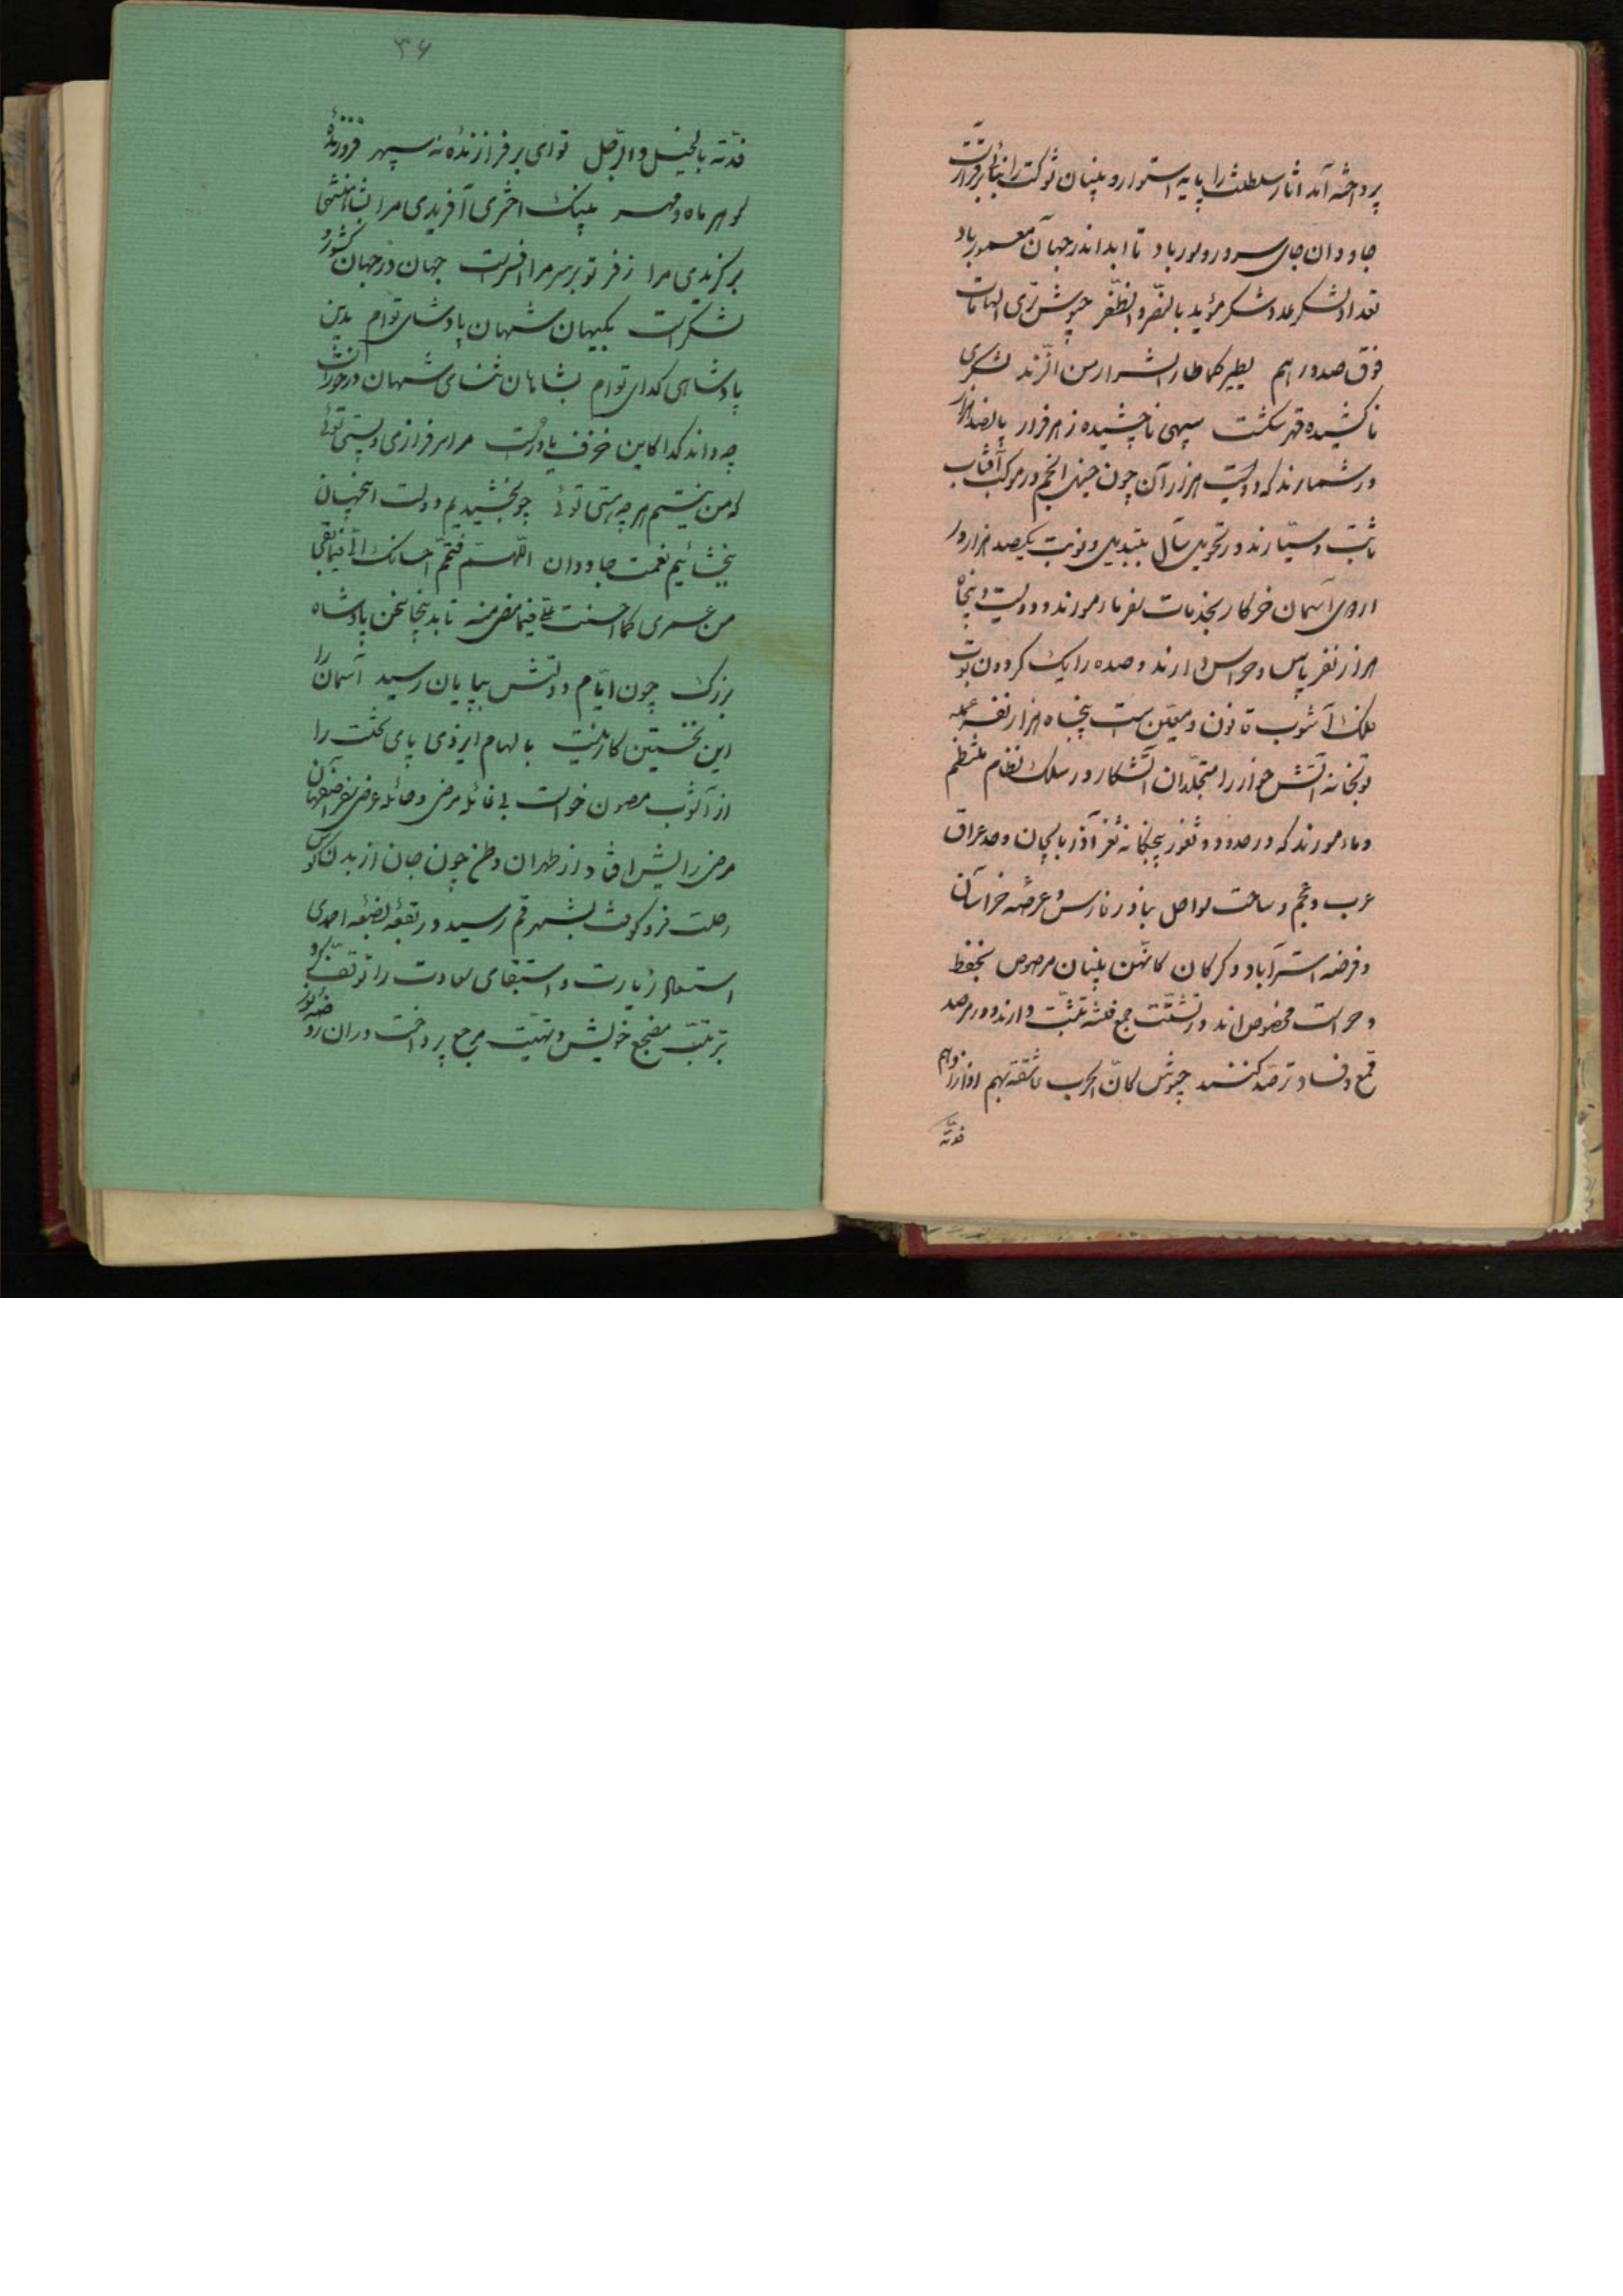 پرداخته آمد آثار سلطنت را پایه استوار و بنیان شوکت را بنائی برقرار
جاودان جای سرور و سور باد تا ابد اندر جهان معمور باد
تعداد لشکر عدو شکر مؤید بالنصر و الظفر جیوش تری الهامات
فوق صدورهم یطیر کما طار الشرار من الزند لشکری
ناکشیده قهر شکست سپهی ناچشیده زهر فرار پانصد هزار
در شمارند که دویست هزار آن چون خیل انجم در موکب آفتاب
ثابت و سیارند و در تحویل سال بتبدیل و نوبت یکصد هزار در
اردوی آسمان خرگاه بخدمات سفر مامورند و دویست و پنجاه
هزار نفر پاس و حراس دارند و صده را یک کرو
ملک آشوب قانون و معین است پنجاه هزار نفر عمله
توپخانه آتش خوار را متجلدان آشکار و در سلک نظام منتظم
و مامورند که در حدود و ثغور پنجگانه ثغر آذربایجان و حد عراق
عرب و عجم و ساحت سواحل بنادر فارس و عرضه خراسان
و فرضه استرآباد و گرگان کانهن بنیان مرصوص بحفظ
و حراست مخصوص اند و در تشتت جمع فتنه تثبت دارند و در مرصد
قمع و فساد ترصد کنند جیوش کان الحرب عاشقة بهم اذا زارها
فدته
۳۶
فدته بالخیل و الرجل تو ای برفرازنده نه سپهر فروزنده
گوهر ماه و مهر به نیک اختری آفریدی مرا بشاهنشهی
برگزیدی مرا ز فر تو بر سر مرا افسر است جهان در جهان کشور و
لشکر است بکیهان شهان پادشای توام بدین
پادشاهی گدای توام بشاهان ثنای شهان در خور است
چه داند گدا کاین خزف یا در است مرا سرفرازی و پستی توئی
که من نیستم هر چه هستی توئی چو بخشیدیم دولت اینجهان
ببخشائیم نعمت جاودان اللهم فتمم احسانک الی فیما بقی
من عمری کما احسنت علی فیما مضی منه تا بدینجا سخن پادشاه
بزرگ چون ایام دولتش بپایان رسید آسمان را
این نخستین کار نیست بالهام ایزدی پای تخت را
از آشوب مصون خواست بی غائله مرض و حائله عرض سفر اصفهان
مرض را پیش افتاد از طهران و طخ چون جان از بدن کوس
رحلت فرو کوفت بشهر قم رسید و در بقعه بضعه احمدی
استسعاد زیارت و استبقای سعادت را توقف کرد و
بترتیب مضجع خویش و تهیت مرجع پرداخت در آن روضه نور